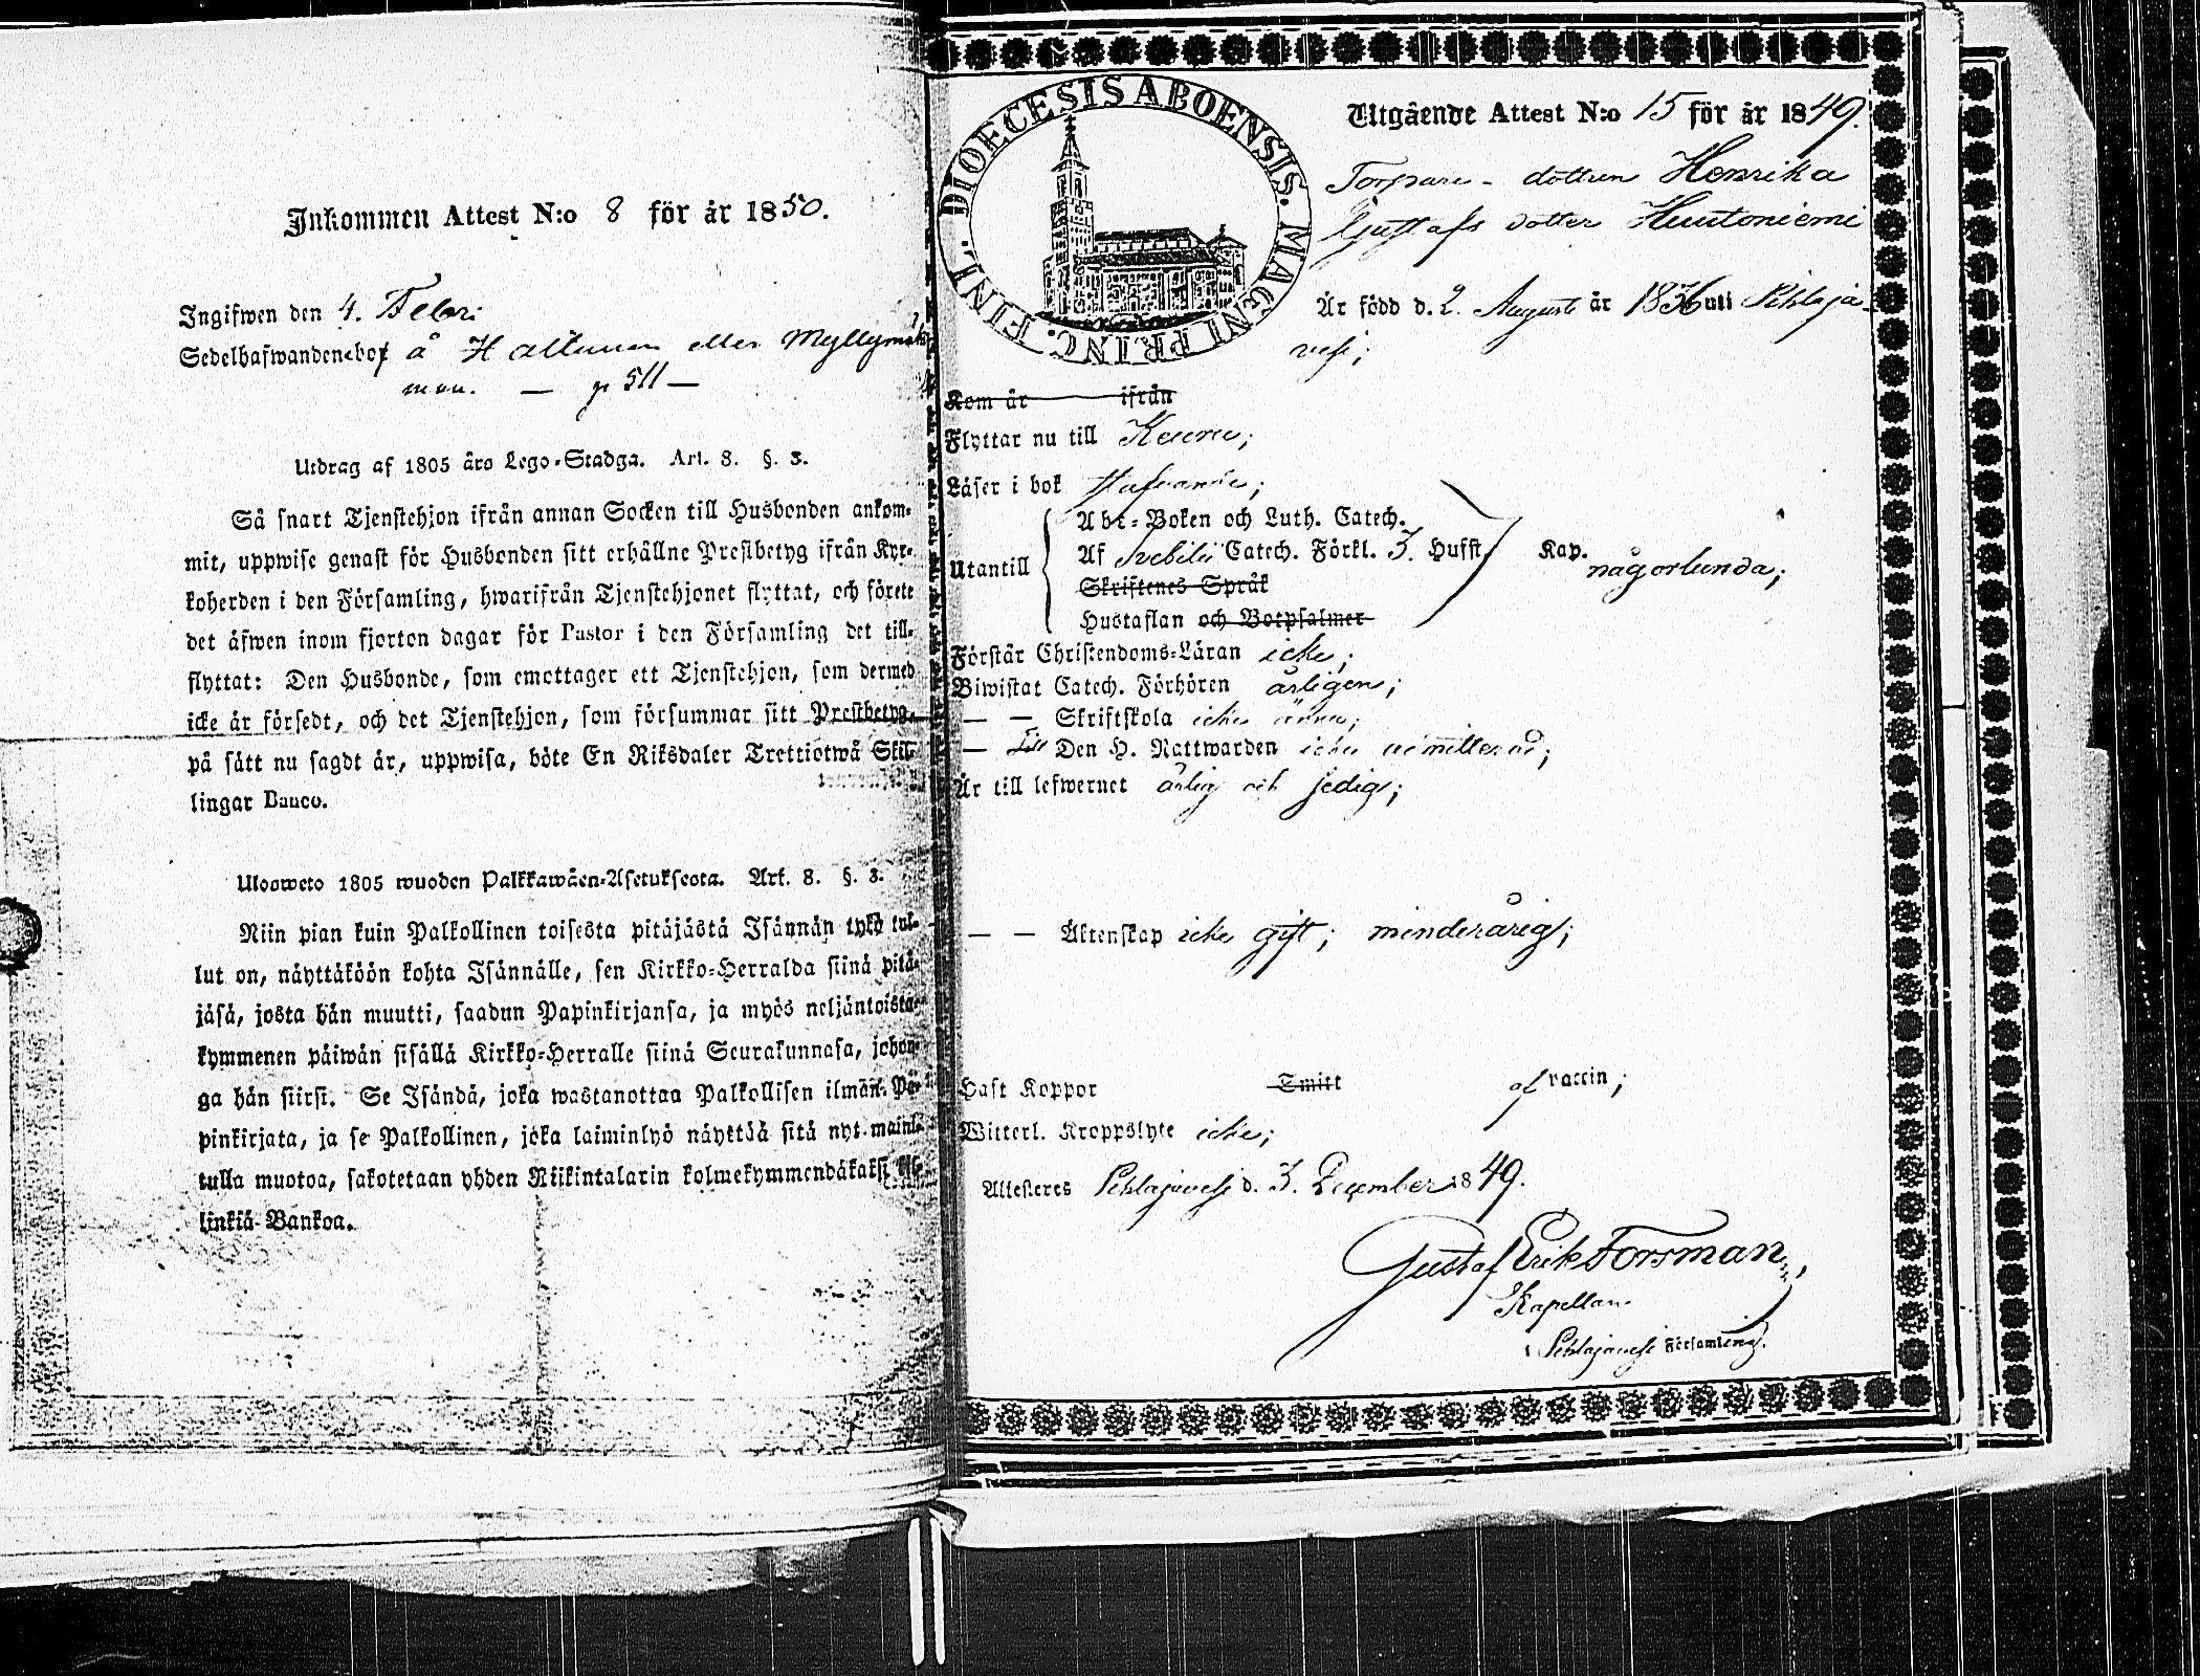 Inkommen Attest N:o 8 för år 1850.
Ingifwen den 4. Febr:
Sedelhafwanden bor å Haltunen eller Myllymäki
man. — p 511 —
Utdrag af 1805 års Lego-Stadga. Art. 8. §. 3.
Så snart Tjenstehjon ifrån annan Socken till Husbonden ankom-
mit, uppwise genast för Husbonden sitt erhållne Prestbetyg ifrån Kyr-
koherden i den Församling, hwarifrån Tjenstehjonet flyttat, och förete
det äfwen inom fjorton dagar för Pastor i den Församling det till-
flyttat: Den Husbonde, som emottager ett Tjenstehjon, som dermed
icke är försedt, och det Tjenstehjon, som försummar sitt Prestbetyg,
på sätt nu sagdt är, uppwisa, böte En Riksdaler Trettiotwå Skil-
lingar Banco.
Ulosweto 1805 wuoden Palkkawäen-Asetuksesta. Art. 8. §. 3.
Niin pian kuin Palkollinen toisesta pitäjästä Isännän tykö tul-
lut on, näyttäköön kohta Isännälle, sen Kirkko-Herralda siinä pitä-
jäsä, josta hän muutti, saadun Papinkirjansa, ja myös neljäntoista-
kymmenen päiwän sisällä Kirkko-Herralle siinä Seurakunnasa, johon-
ga hän siirsi. Se Isändä, joka wastanottaa Palkollisen ilman Pa-
pinkirjata, ja se Palkollinen, joka laiminlyö näyttää sitä nyt maini-
tulla muotoa, sakotetaan yhden Riikintalarin kolmekymmendäkaksi kil-
linkiä Bankoa.
DIOECESIS ABOENSIS. MAGNI PRINC. FINL.
Utgående Attest N:o 15 för år 1849.
Torpare-dottren Henrika
Gustafs dotter Huutoniemi
Är född d. 2. Augusti år 1836 uti Pihlaja-
vesi;
Kom år ifrån
Flyttar nu till Keuru;
Läser i bok
Utantill
Abc-Boken och Luth. Catech.
Af Svebilii Catech. Förkl. 3. Hufst. Kap. någorlunda;
Skriftenes Språk
Hustaflan och Botpsalmer
Förstår Christendoms-Läran icke;
Biwistat Catech. Förhören årligen;
— — Skriftskola icke ännu;
— Till Den H. Nattwarden icke admitterad;
Är till lefwernet ärlig och sedig;
— — Äktenskap icke gift; minderårig;
Haft Koppor Smitt af vaccin;
Witterl. Kroppslyte icke;
Attesteres Pihlajavesi d. 3. December 1849.
Gustaf Erik Forsman,
Kapellan
i Pihlajavesi Församling.